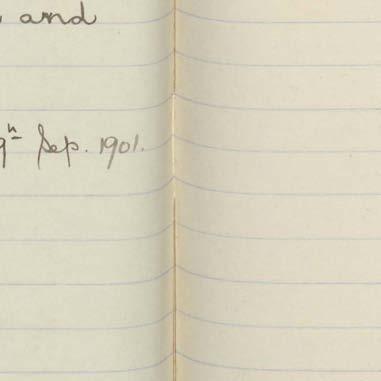 and
9ʰ Sep. 1901.